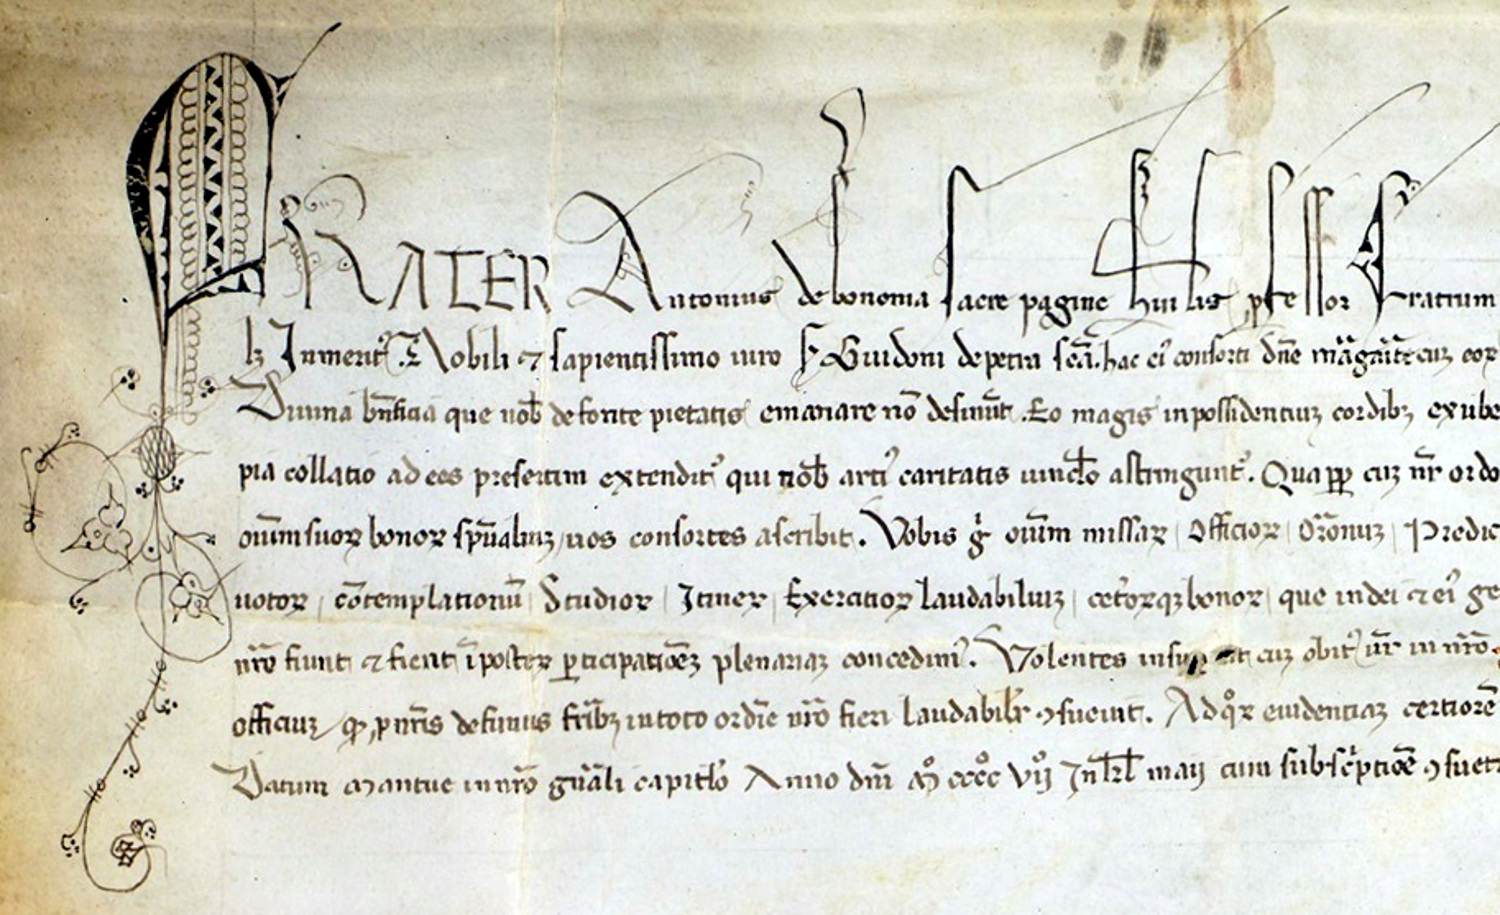 FRATER Antonius de bononia sacre pagine humilis ꝓfessor Fratrum
lꝫ Inmerit᾽. Nobili ⁊ sapientissimo uiro S᾽ Guidoni de petra sc̄ā. hac eī consorti dn̄e mārgarite cuꝫ eoꝝ
Diuina bn̄ficia que nob̄ de fonte pietatis emanare nō desinūt. Eo magis in possidentiuꝫ cordibꝫ exube
pia collatio ad eos presertim extendit᾽ qui nob̄ arti᾽ caritatis uincl̄o astringunt᾽. Qua ꝓp̱ cuꝫ nr̄ ordo
oīum suoꝝ bonoꝝ sp̄ualiuꝫ uos consortes ascribit. Vobis gͥ oīum missaꝝ Officioꝝ Orōnuꝫ Predic
uotoꝝ cōtemplationū Studioꝝ Itineꝝ Exercitioꝝ laudabiliuꝫ cet᾽oꝝqꝫ bonoꝝ que in dei ⁊ eī ge
nr̄o fiunt ⁊ fient ī posteꝝ ꝑticipatiōeꝫ plenariaꝫ concedim᾽. Volentes insuꝑ ut cuꝫ obit᾽ ur̄ in nr̄o
officiuꝫ qḏ ꝓ nr̄is defunctis fr̄ibꝫ in toto ordīe nr̄o fieri laudabilr̄ ꝯsueuit. Ad qͦꝝ euidentiaꝫ certiorē
Datum Mantue in nr̄o gn̄ali capitl̄o Anno dnī Mͦ ccccͦ vijͦ In kl̄ maij cum subscͥptiōe ꝯsuet